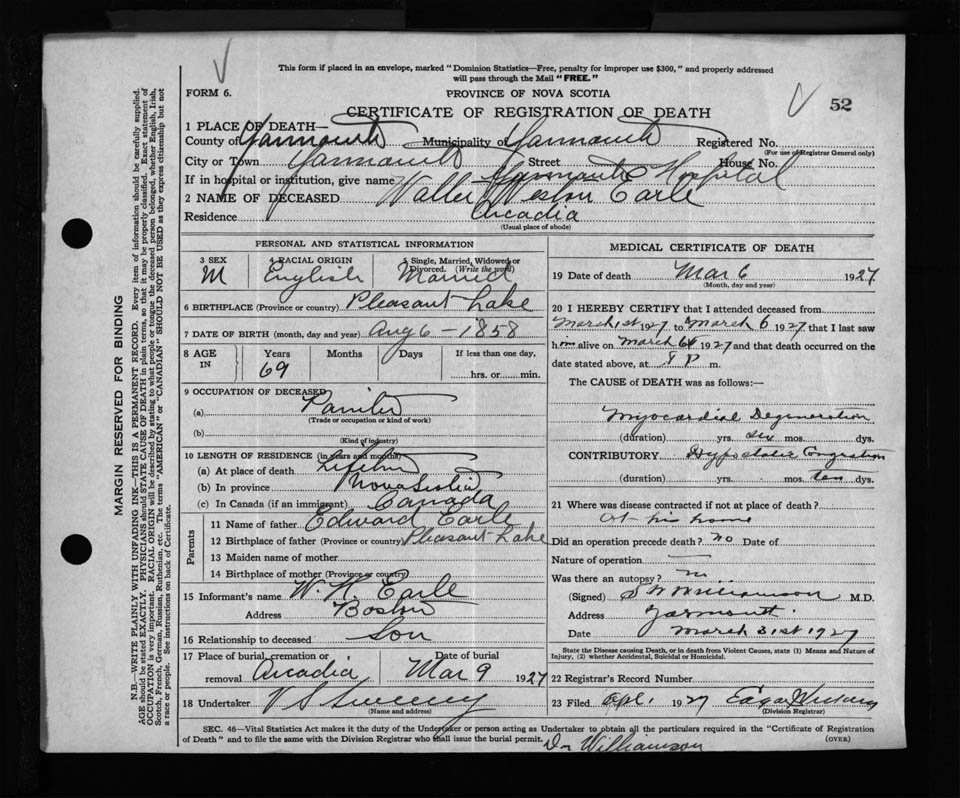 This form if placed in an envelope, marked "Dominion Statistics—Free, penalty for improper use $300," and properly addressed
will pass through the Mail "FREE."
FORM 6.
PROVINCE OF NOVA SCOTIA
52
CERTIFICATE OF REGISTRATION OF DEATH
1 PLACE OF DEATH—
County of Yarmouth Municipality of Yarmouth Registered No.
(For use of Registrar General only)
City or Town Yarmouth Street House No.
If in hospital or institution, give name Yarmouth Hospital
2 NAME OF DECEASED Weston Earle
Residence Arcadia
(Usual place of abode)
PERSONAL AND STATISTICAL INFORMATION
3 SEX 4 RACIAL ORIGIN 5 Single, Married, Widowed or
Divorced. (Write the word)
M English Married
6 BIRTHPLACE (Province or country) Pleasant Lake
7 DATE OF BIRTH (month, day and year) Aug 6 - 1858
8 AGE IN Years Months Days If less than one day,
69 hrs. or min.
9 OCCUPATION OF DECEASED
(a)
(Trade or occupation or kind of work)
(b)
(Kind of industry)
10 LENGTH OF RESIDENCE (in years and months)
(a) At place of death Lifetime
(b) In province Nova Scotia
(c) In Canada (if an immigrant) Canada
Parents
11 Name of father Edward Earle
12 Birthplace of father (Province or country) Pleasant Lake
13 Maiden name of mother
14 Birthplace of mother (Province or country)
15 Informant's name W. H. Earle
Address Boston
16 Relationship to deceased Son
17 Place of burial, cremation or Date of burial
removal Arcadia Mar 9 1927
18 Undertaker V S Sweeny
(Name and address)
MEDICAL CERTIFICATE OF DEATH
19 Date of death Mar 6 1927
(Month, day and year)
20 I HEREBY CERTIFY that I attended deceased from
March 1st 1927 to March 6 1927 that I last saw
him alive on March 6th 1927 and that death occurred on the
date stated above, at P m.
The CAUSE of DEATH was as follows:—
Myocardial Degeneration
(duration) yrs. six mos. dys.
CONTRIBUTORY Hypostatic Congestion
(duration) yrs. mos. ten dys.
21 Where was disease contracted if not at place of death?
At his home
Did an operation precede death? no Date of
Nature of operation
Was there an autopsy? no
(Signed) Williamson M.D.
Address Yarmouth
Date March 31st 1927
State the Disease causing Death, or in death from Violent Causes, state (1) Means and Nature of
Injury, (2) whether Accidental, Suicidal or Homicidal.
22 Registrar's Record Number
23 Filed Apl. 1 1927
(Division Registrar)
SEC. 46—Vital Statistics Act makes it the duty of the Undertaker or person acting as Undertaker to obtain all the particulars required in the "Certificate of Registration
of Death" and to file the same with the Division Registrar who shall issue the burial permit.
(OVER)
Dr Williamson
MARGIN RESERVED FOR BINDING
N.B.—WRITE PLAINLY WITH UNFADING INK—THIS IS A PERMANENT RECORD. Every item of information should be carefully supplied.
AGE should be stated EXACTLY. PHYSICIANS should STATE CAUSE OF DEATH in plain terms, so that it may be properly classified. Exact statement of
OCCUPATION is very important. RACIAL ORIGIN will be described by stating to what people or tongue the deceased person belonged, whether English, Irish,
Scotch, French, German, Russian, Ruthenian, etc. The terms "AMERICAN" or "CANADIAN" SHOULD NOT BE USED as they express citizenship but not
a race or people. See instructions on back of Certificate.